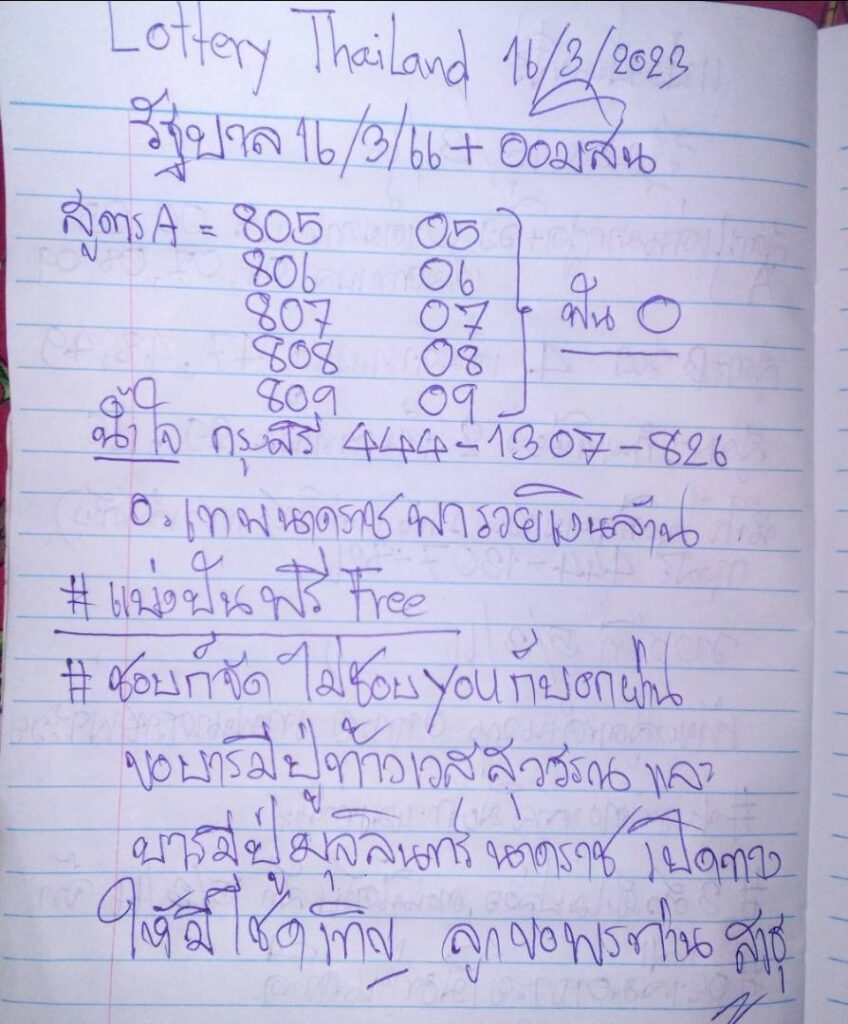 Lottery Thailand 16/3/2023
รัฐบาล 16/3/66 + ออมสิน
สูตร A = 805 05
806 06
807 07 ฟัน 0
808 08
809 09
น้ำใจ กรุงศรี 444-1307-826
อ.เทพนาคราช พารวยเงินล้าน
# แบ่งปันฟรี Free
# ชอบก็จัด ไม่ชอบ you ก็บอกผ่าน
ขอบารมีปู่ท้าวเวสสุวรรณ และ
บารมีปู่มุจลินทร์ นาคราช เปิดทาง
ให้มีโชคด้วยเทิญ ลูกขอพรท่าน สาธุ